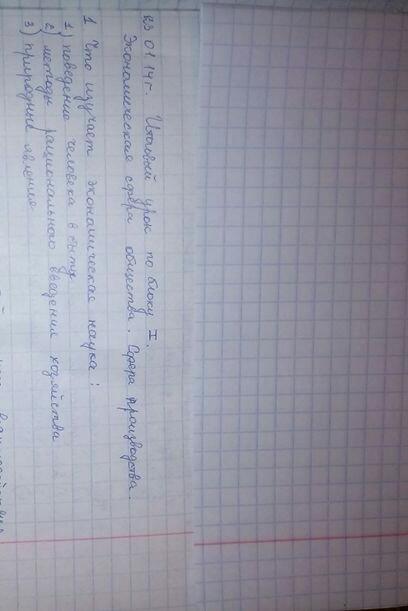 23 01 14 г. Итоговый урок по блоку I.
Экономическая сфера общества. Сфера производства.
1 Что изучает экономическая наука:
1) поведение человека в быту
2) методы рационального введения хозяйства
3) природные явления